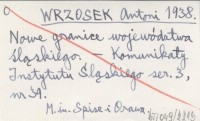 WRZOSEK Antoni 1938.
Nowe granice województwa
śląskiego. — Komunikaty
Instytutu Śląskiego ser. 3,
nr 31.
M. in. Spisz i Orawa.